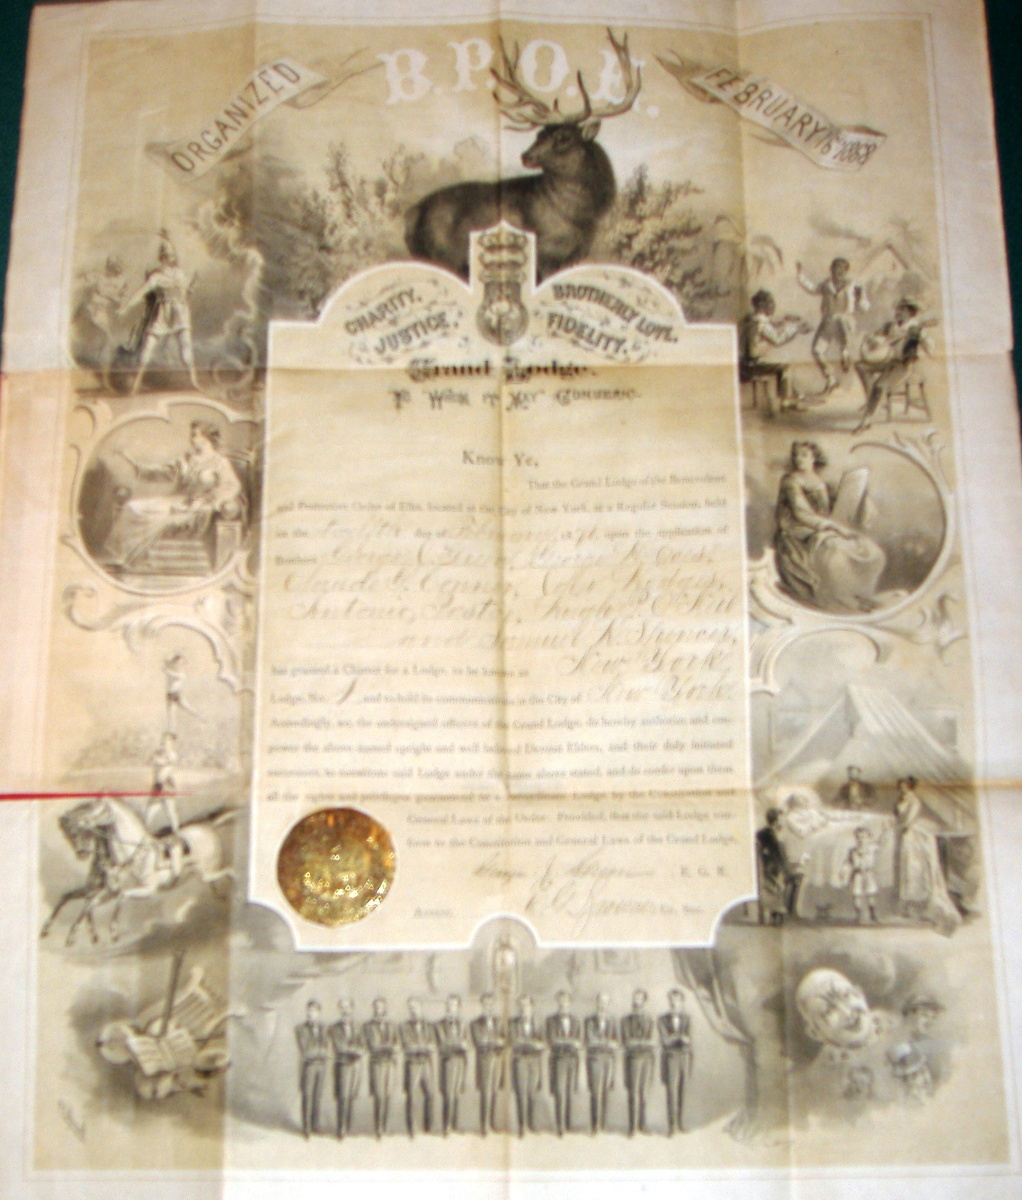 B.P.O.E.
ORGANIZED
FEBRUARY 16 1868
CHARITY,
JUSTICE,
BROTHERLY LOVE,
FIDELITY.
Grand Lodge.
To Whom it May Concern.
Know Ye,
That the Grand Lodge of the Benevolent
and Protective Order of Elks, located at the City of New York, at a Regular Session, held
on the twelfth day of February, upon the application of
Brothers George
Claude G.
Antonio Hugh P.
and Samuel K. Spencer,
has granted a Charter for a Lodge, to be known as New York
Lodge, No. 1, and to hold its communications in the City of New York.
Accordingly, we, the undersigned officers of the Grand Lodge, do hereby authorize and em-
power the above named upright and well beloved Elders, and their duly initiated
successors, to constitute said Lodge under the name above stated, and do confer upon them
all the rights and privileges guaranteed to a Lodge by the Constitution and
General Laws of the Order. Provided, that the said Lodge con-
form to the Constitution and General Laws of the Grand Lodge.
George J. E. G. R.
Attest, Gr. Sec.